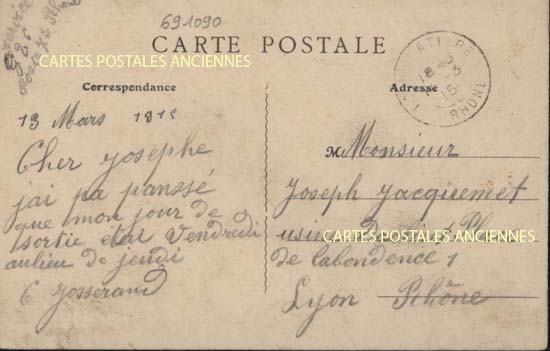 691090
CARTE POSTALE
CARTES POSTALES ANCIENNES
Correspondance
Adresse
RHONE
13 Mars 191
Cher Josephe
jai pa panssé
que mon jour de
sortie étai Vendredi
aulieu de jeudi
C Josserand
M Monsieur
Joseph Jacquemet
usin
CARTES POSTALES ANCIENNES
de labondence 1
Lyon Rhône